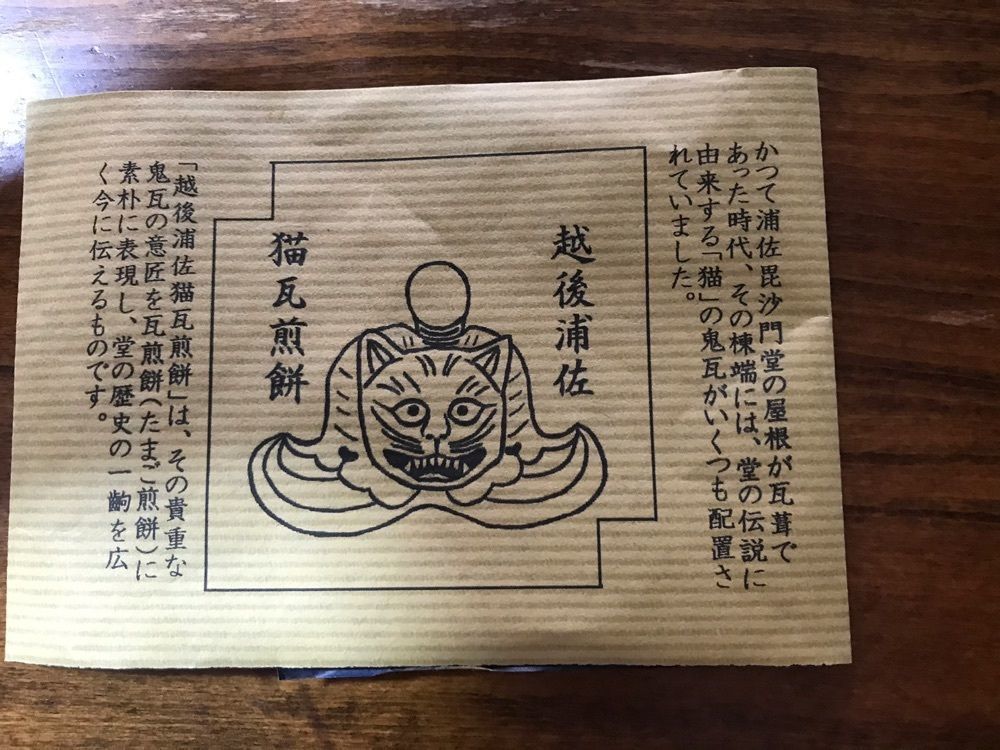 かつて浦佐毘沙門堂の屋根が瓦葺で
あった時代、その棟端には、堂の伝説に
由来する「猫」の鬼瓦がいくつも配置さ
れていました。
越後浦佐
猫瓦煎餅
「越後浦佐猫瓦煎餅」は、その貴重な
鬼瓦の意匠を瓦煎餅(たまご煎餅)に
素朴に表現し、堂の歴史の一齣を広
く今に伝えるものです。